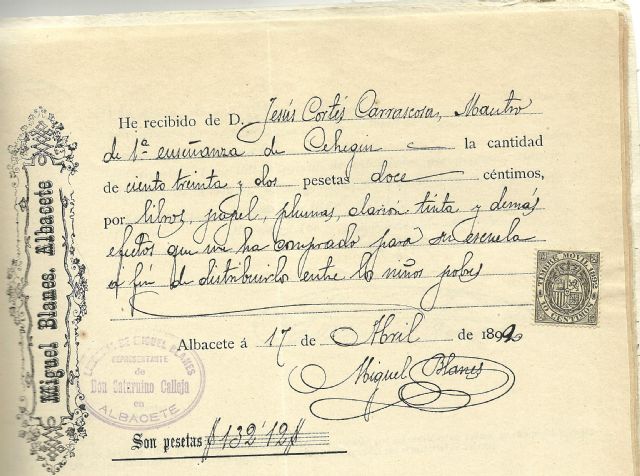 Miguel Blanes. Albacete
He recibido de D. Jesús Cortés Carrascosa, Maestro
de 1ª enseñanza de Cehegin la cantidad
de ciento treinta y dos pesetas doce céntimos,
por libros, papel, plumas, clarión tinta y demás
efectos que me ha comprado para su escuela
á fin de distribuirlos entre los niños pobres
TIMBRE MOVIL 1892
CENTIMOS
Albacete á 17 de Abril de 1892
Miguel Blanes
DE MIGUEL BLANES
REPRESENTANTE
de
Don Saturnino Calleja
en
ALBACETE
Son pesetas $132'12$